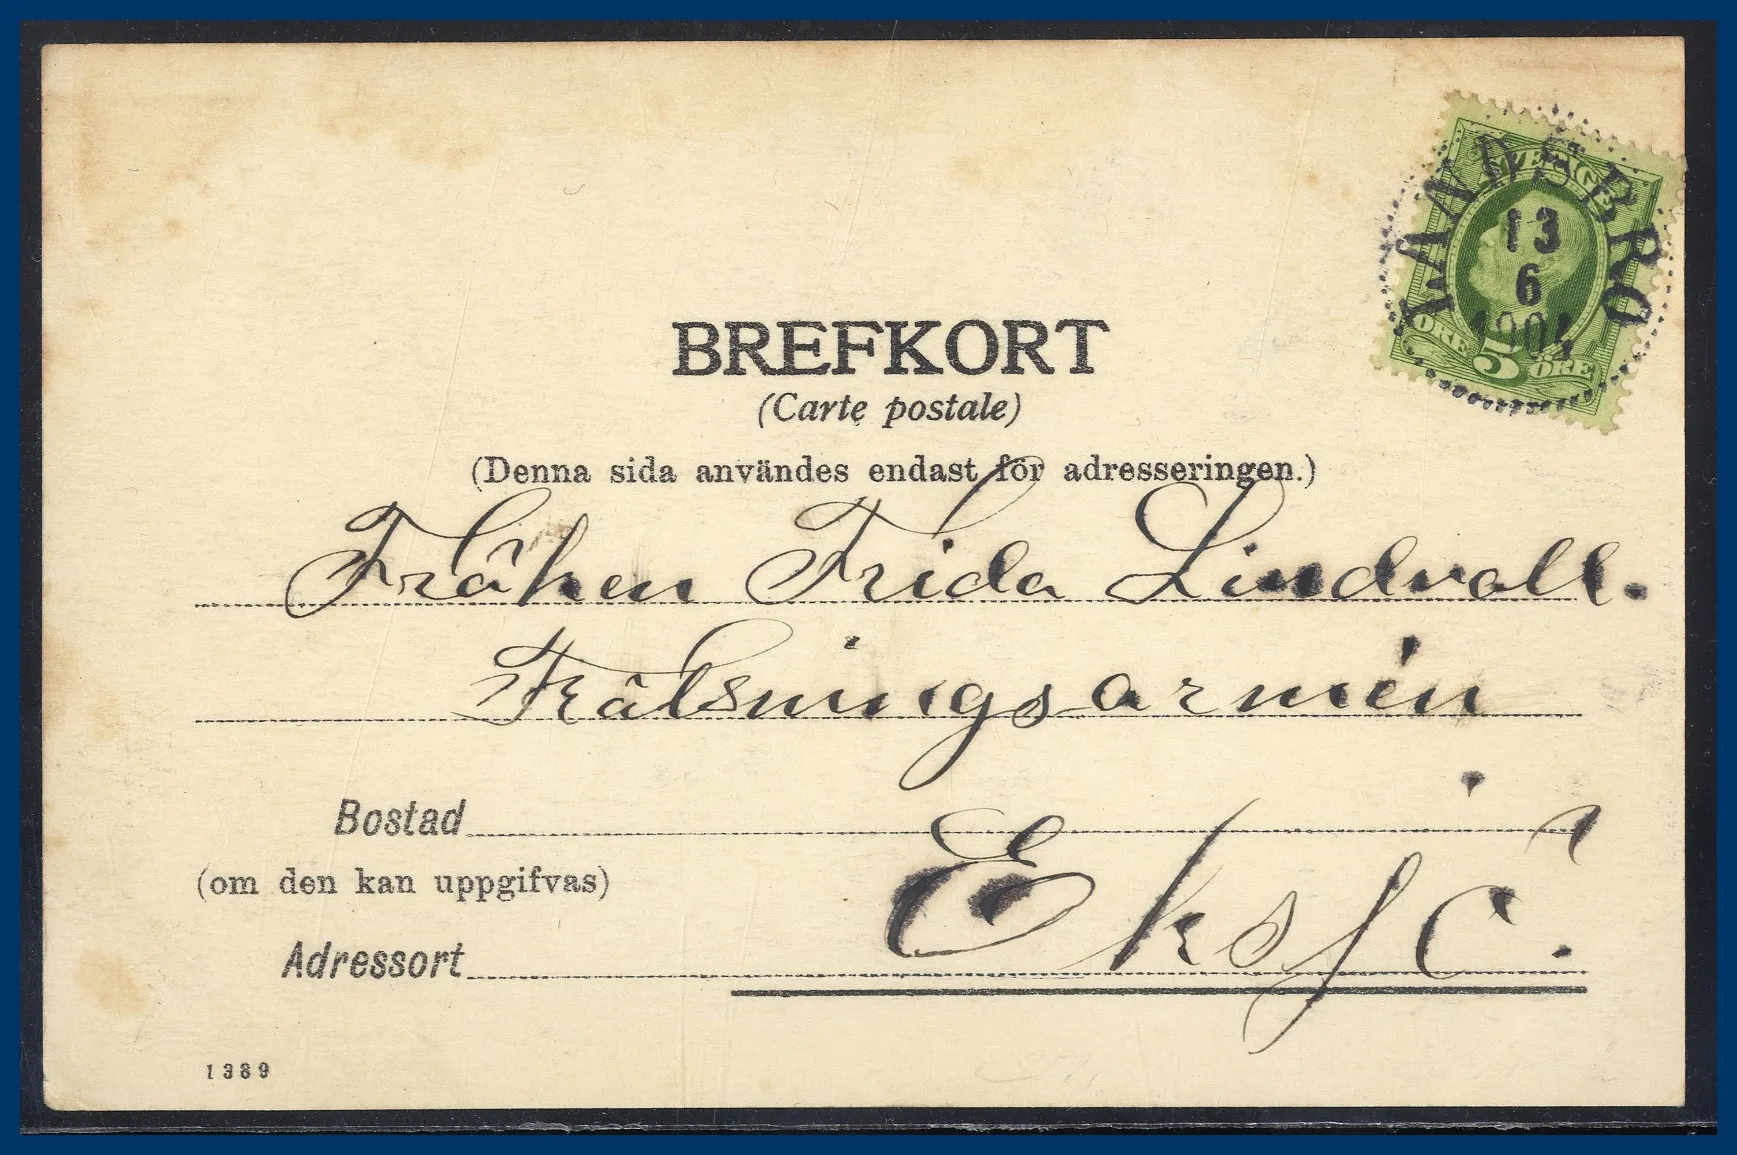 LANDSBRO
13
6
1904
SVERIGE
ÖRE 5 ÖRE
BREFKORT
(Carte postale)
(Denna sida användes endast för adresseringen.)
Fröken Frida Lindvall.
Frälsningsarmén
Bostad
(om den kan uppgifvas)
Adressort Eksjö.
1389